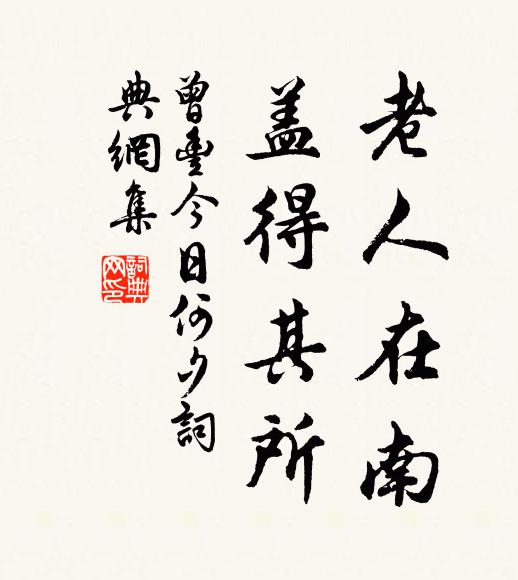 老人在南
盖得其所
曾豊今日何夕詞
典網集
詞典
网印